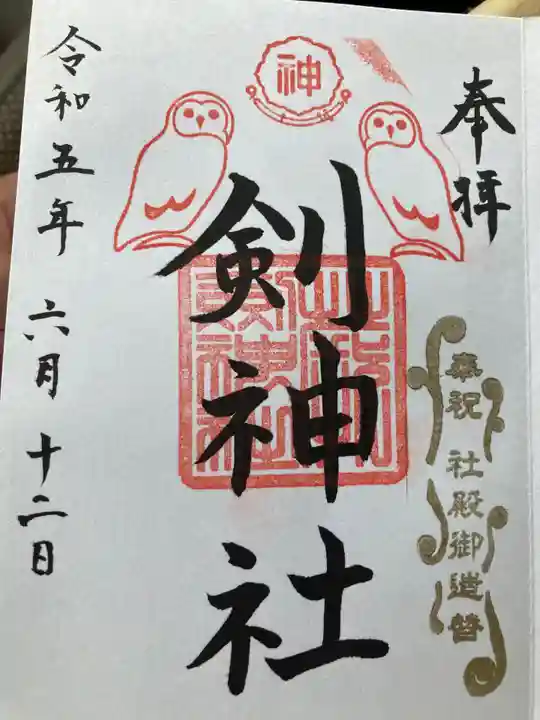 奉拝
奉祝 社殿御造替
神
剣神社
令和五年 六月 十二日